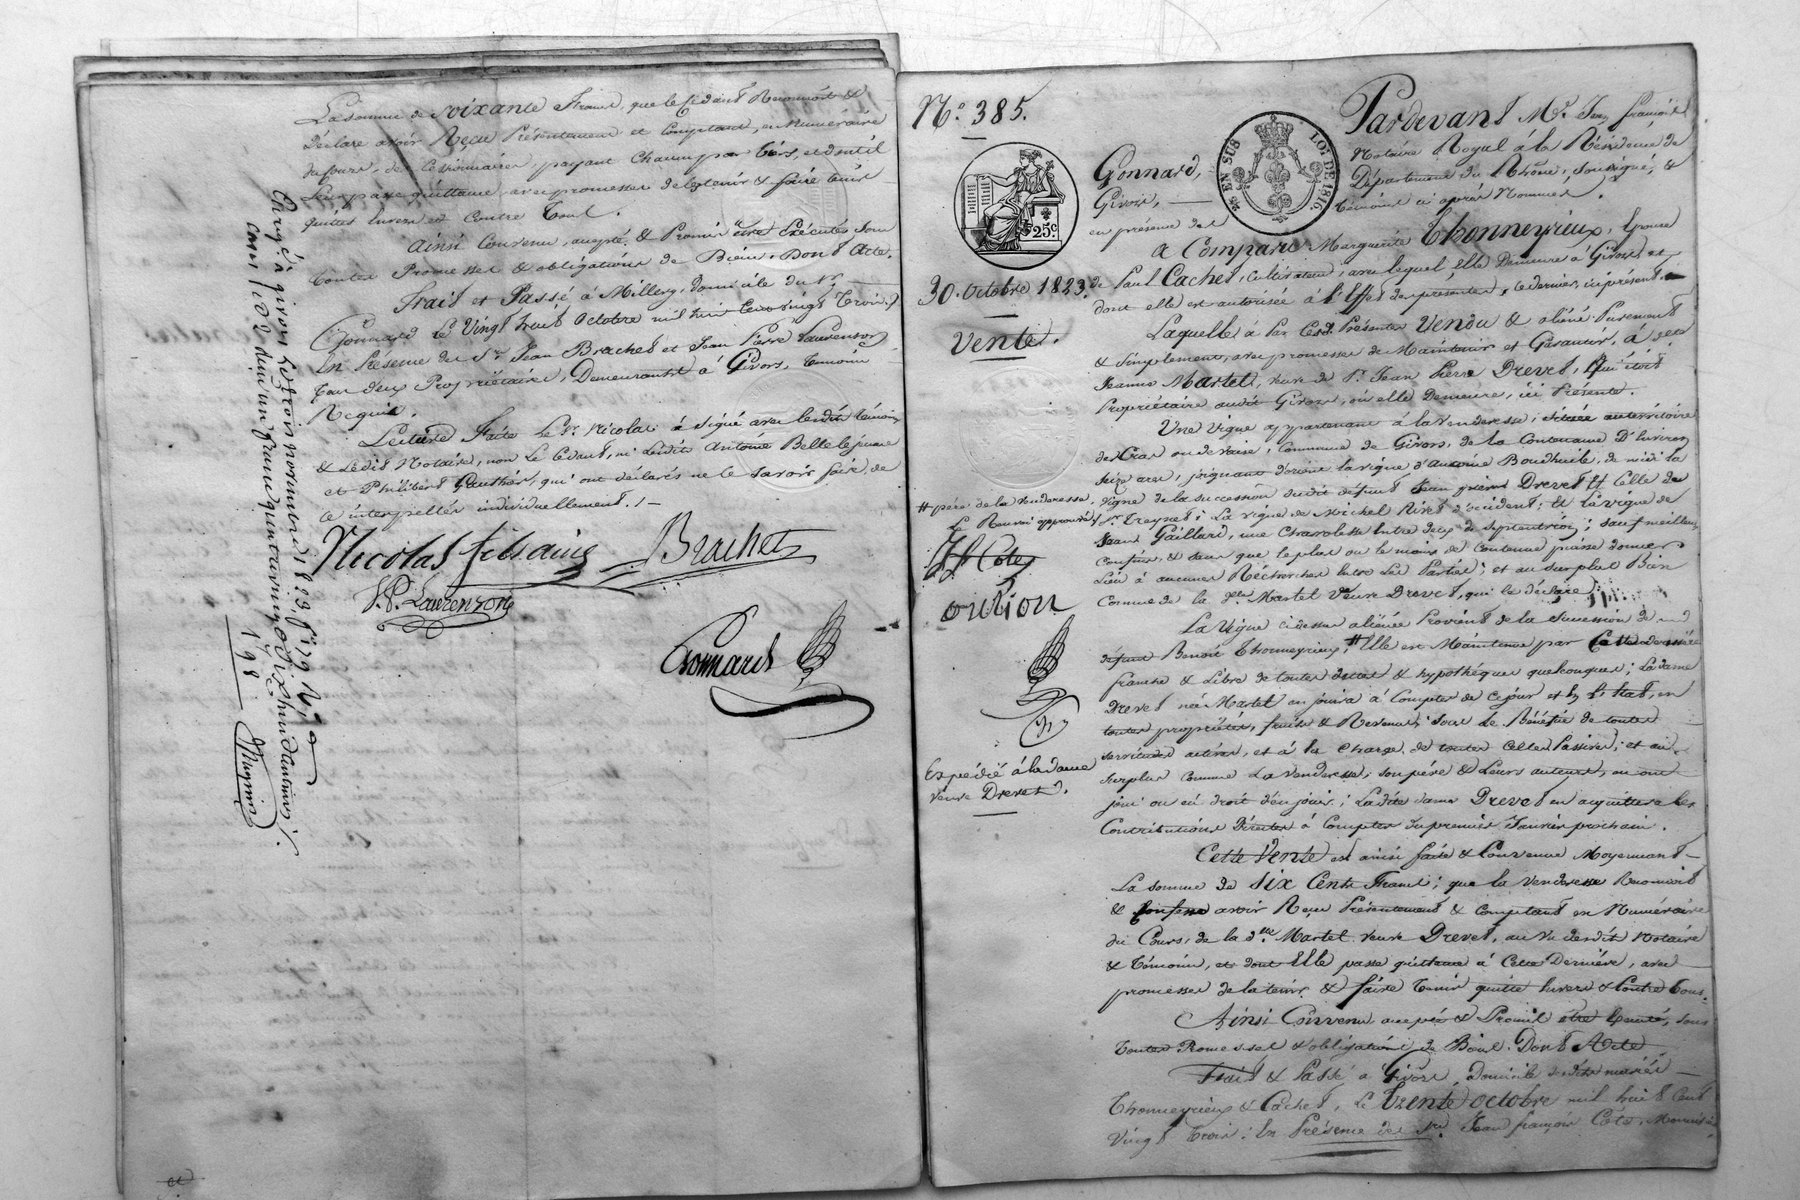 La somme de soixante francs, que le Cédant Reconnoit &
Déclare avoir Reçu Présentement et Comptant, en Numéraire
du cours, des Cessionnaires, payant chacun par tiers, et dont il
Leur passe quittance, avec promesses de les tenir & faire tenir
quittes envers et Contre tous.
Ainsi Convenu, accepté, & Promis être Exécutés sous
toutes Promesses & obligations de Biens, Dont Acte.
Fait et Passé à Millery, domicile du Sr.
Gonnard Le Vingt huit Octobre mil huit Cent vingt trois,
En Présence des Srs. Jean Brachet et Jean Pierre Laurenson
tous deux Propriétaires, Demeurants à Givors, témoins
Requis.
Lecture Faite Le Sr. Nicolas à signé avec lesdits témoins
& Ledit Notaire, non Le Cédant, ni Lesdits Antoine Belle le jeune
et Philibert Gauthier, qui ont déclarés ne le savoir faire, de
ce interpellés individuellement. /-
Nicolas
Brachet
J.P. Laurenson
Gonnard
198
N.° 385.
25c
EN SUS
LOI DE 1816.
30. Octobre 1823.
Vente.
Pardevant Me. Jean françois
Gonnard, Notaire Royal à la Résidence de
Givors, Département du Rhône, soussigné, &
en présence des témoins ci après Nommés.
A Comparu Marguerite Thonneyrieux, Epouse
de Paul Cachet, Cultivateur, avec lequel elle Demeure à Givors et
dont elle est autorisée à l'Effet des présentes, ce dernier, ici présent.
Laquelle à Par Ces Présentes Vendu & aliéné Purement
& Simplement, avec promesses de Maintenir et Garantir, à
Jeanne Martel, veuve de Sr. Jean Pierre Drevet, qui étoit
Propriétaire audit Givors, où elle Demeure, ici Présente.
Une Vigne appartenant à la venderesse, située au territoire
de Cras ou de vaise, Commune de Givors, de la Contenance D'Environ
seize ares, joignant d'orient la vigne d'Antoine Boudhuile, de midi la
vigne de la succession dudit défunt Jean pierre Drevet & Celle de
Sr. Treynet; La vigne de Michel Rivet d'occident; & La vigne de
Jean Gaillard, une Charolette Entre deux de septentrion; sauf meilleurs
confins & sans que le plus ou le moins de Contenue puisse donner
Lieu à aucunes Recherches Entre Les Parties; et au surplus Bien
Connue de la De. Martel Veuve Drevet, qui le déclare.
# père de la Venderesse.
Le Renvoi approuvé
JfCote
Expédié à la dame
Veuve Drevet.
La Vigne ci dessus aliénée Provient de la Succession de
défunt Benoit Thonneyrieux, # Elle est Maintenue par Cette dernière
franche & Libre de toutes dettes & hypothèques quelconques; La dame
Drevet née Martel en jouira à Compter de Ce jour et en l'état, en
toutes propriétés, fruits & Revenus, sous Le Bénéfice de toutes
servitudes actives, et à La charge de toutes Celles Passives; et au
surplus comme La venderesse, son père & Leurs auteurs, en ont
joui ou eu droit d'en jouir; La dite dame Drevet en acquittera les
Contributions Directes à Compter du premier Janvier prochain.
Cette Vente est ainsi faite & Convenue Moyennant
La somme de Six Cents francs; que la Venderesse Reconnoit
& Confesse avoir Reçu Présentement & Comptant en Numéraire
du Cours, de la de. Martel veuve Drevet, au vu desdits Notaire
& témoins, et dont Elle passe quittance à Cette Dernière, avec
promesses de la tenir & faire tenir quitte Envers & Contre tous.
Ainsi Convenu accepté & Promis être Exécuté, sous
toutes Promesses & obligations de Biens. Dont Acte
Fait & Passé à Givors, Domicile desdits mariés
Thonneyrieux & Cachet, Le trente octobre mil huit Cent
Vingt trois; En Présence des Srs. Jean françois Côte,